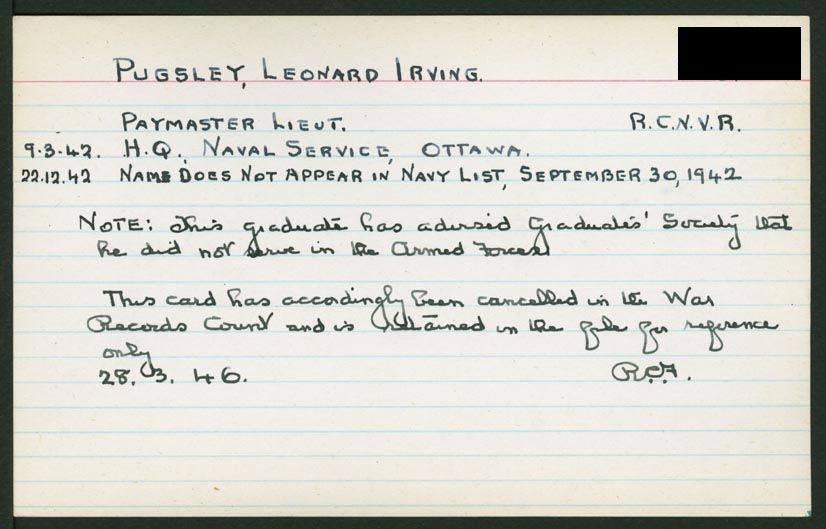 PUGSLEY, LEONARD IRVING.
PAYMASTER LIEUT. R.C.N.V.R.
9.3.42. H.Q. NAVAL SERVICE, OTTAWA.
22.12.42 NAME DOES NOT APPEAR IN NAVY LIST, SEPTEMBER 30, 1942
NOTE: This graduate has advised Graduates' Society that
he did not serve in the Armed Forces
This card has accordingly been cancelled in the War
Records Count and is retained in the file for reference
only
28.3.46.